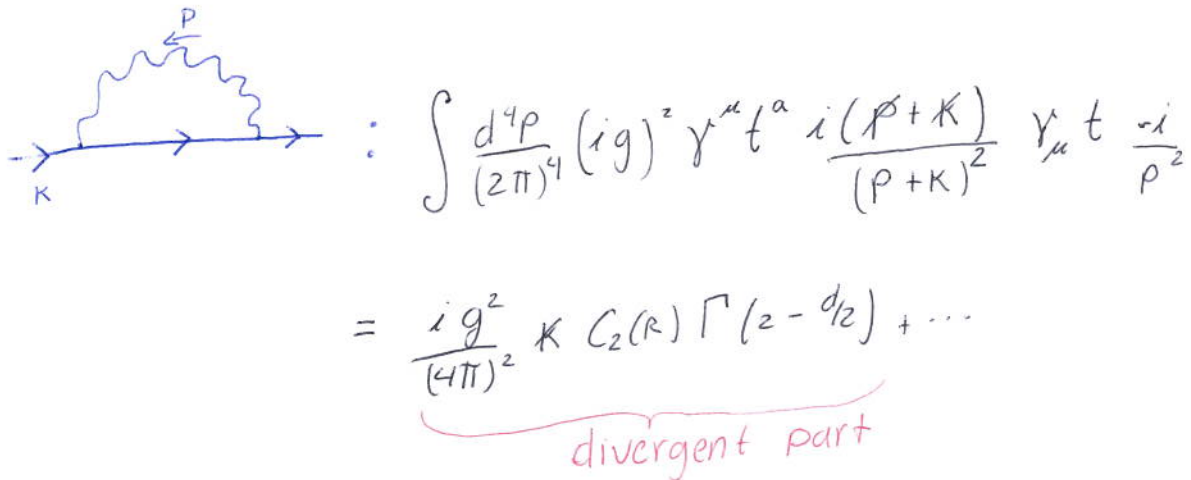 P
K
: ∫ d⁴p/(2π)⁴ (ig)² γ^μ t^a i(p̸ + k̸)/(p + k)² γ_μ t -i/p²
= ig²/(4π)² k̸ C₂(R) Γ(2 - d/2) + ...
divergent part